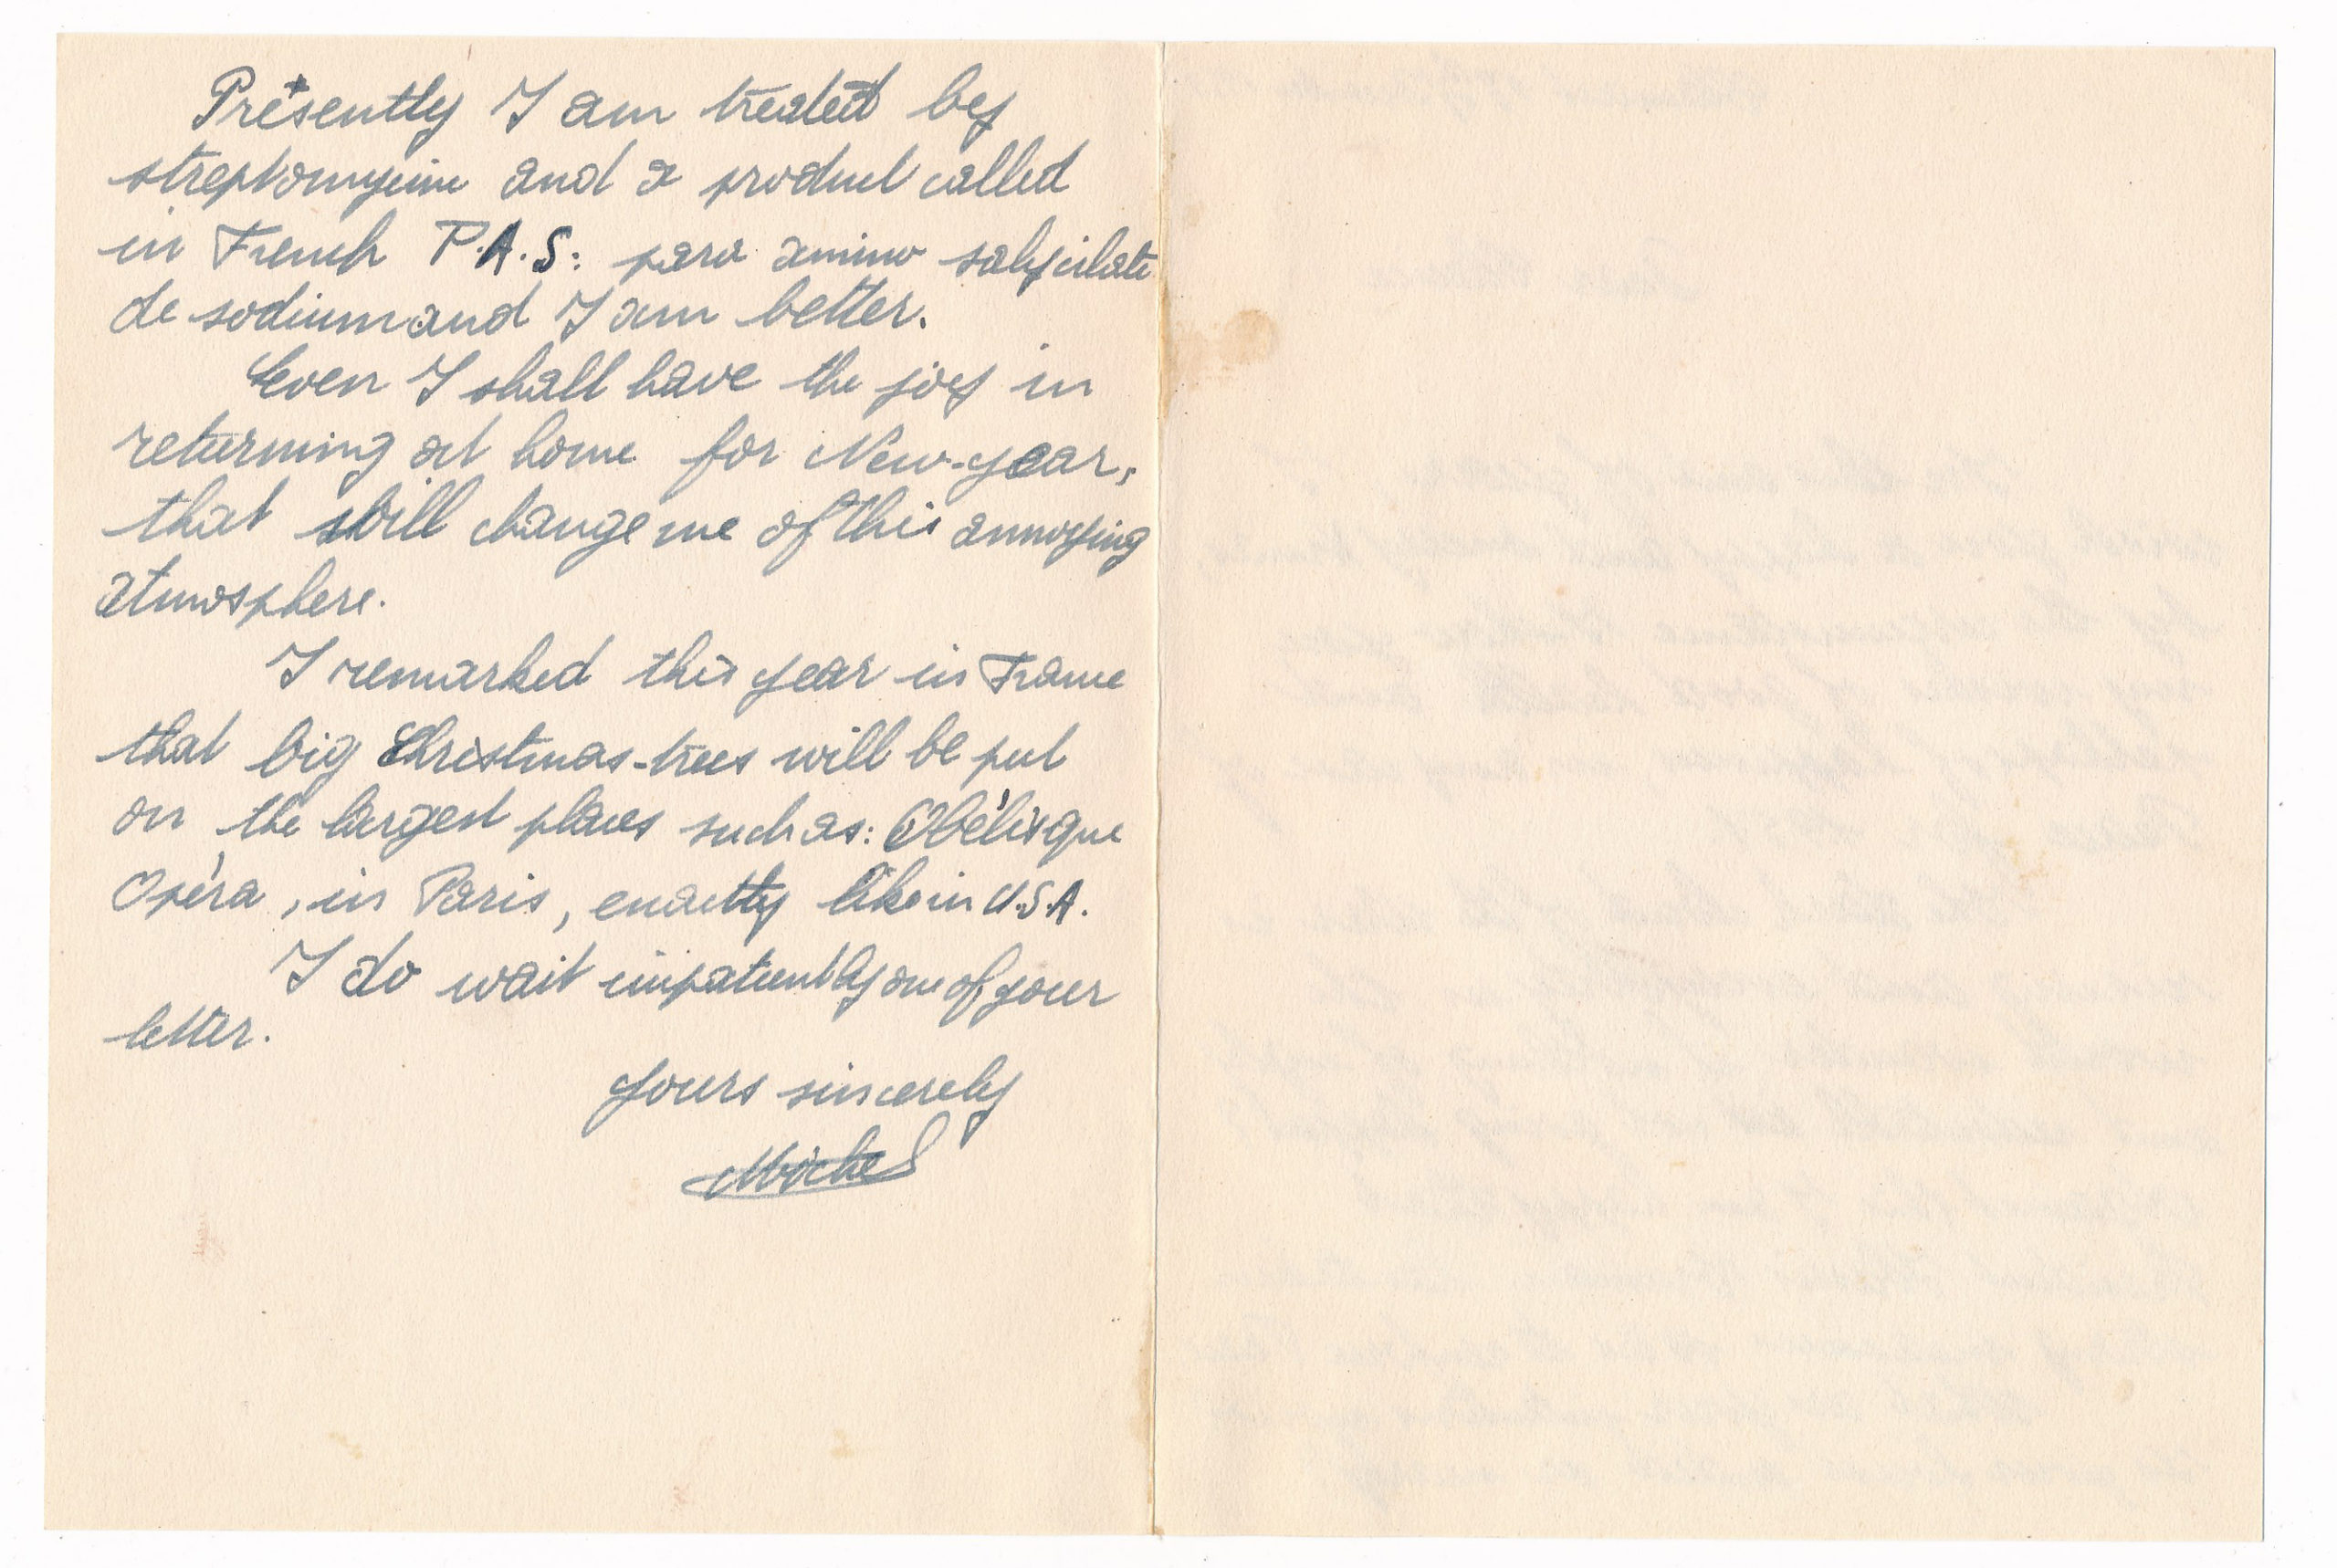 Presently I am treated by
streptomycine and a product called
in French P.A.S: para amino salycilate
de sodium and I am better.
Even I shall have the joy in
returning at home for New-year,
that will change me of this annoying
atmosphere.
I remarked this year in France
that big Christmas-trees will be put
on the largest places such as: Obélisque
Opéra, in Paris, exactly like in U.S.A.
I do wait impatiently one of your
letter.
Yours sincerely
Michel